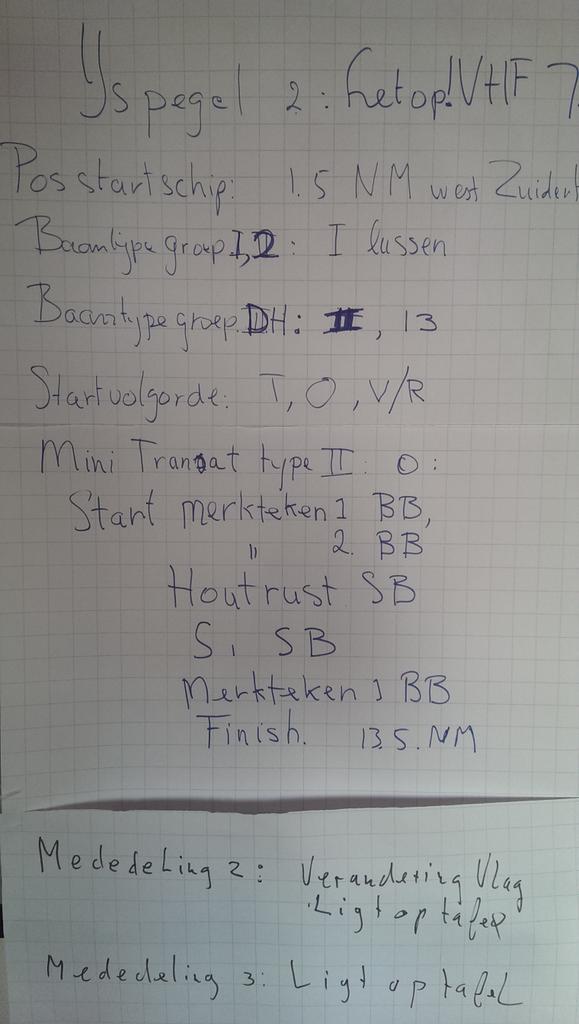 IJspegel 2: Let op! VHF 7
Pos startschip: 1.5 NM west Zuider
Baantype groep I, 2: I lussen
Baantype groep DH: II, 13
Startvolgorde: T, O, V/R
Mini Transat type II: O:
Start merkteken 1 BB,
" 2. BB
Houtrust SB
S, SB
Merkteken 1 BB
Finish. 13.5. NM
Mededeling 2: Verandering Vlag
Ligt op tafel
Mededeling 3: Ligt op tafel